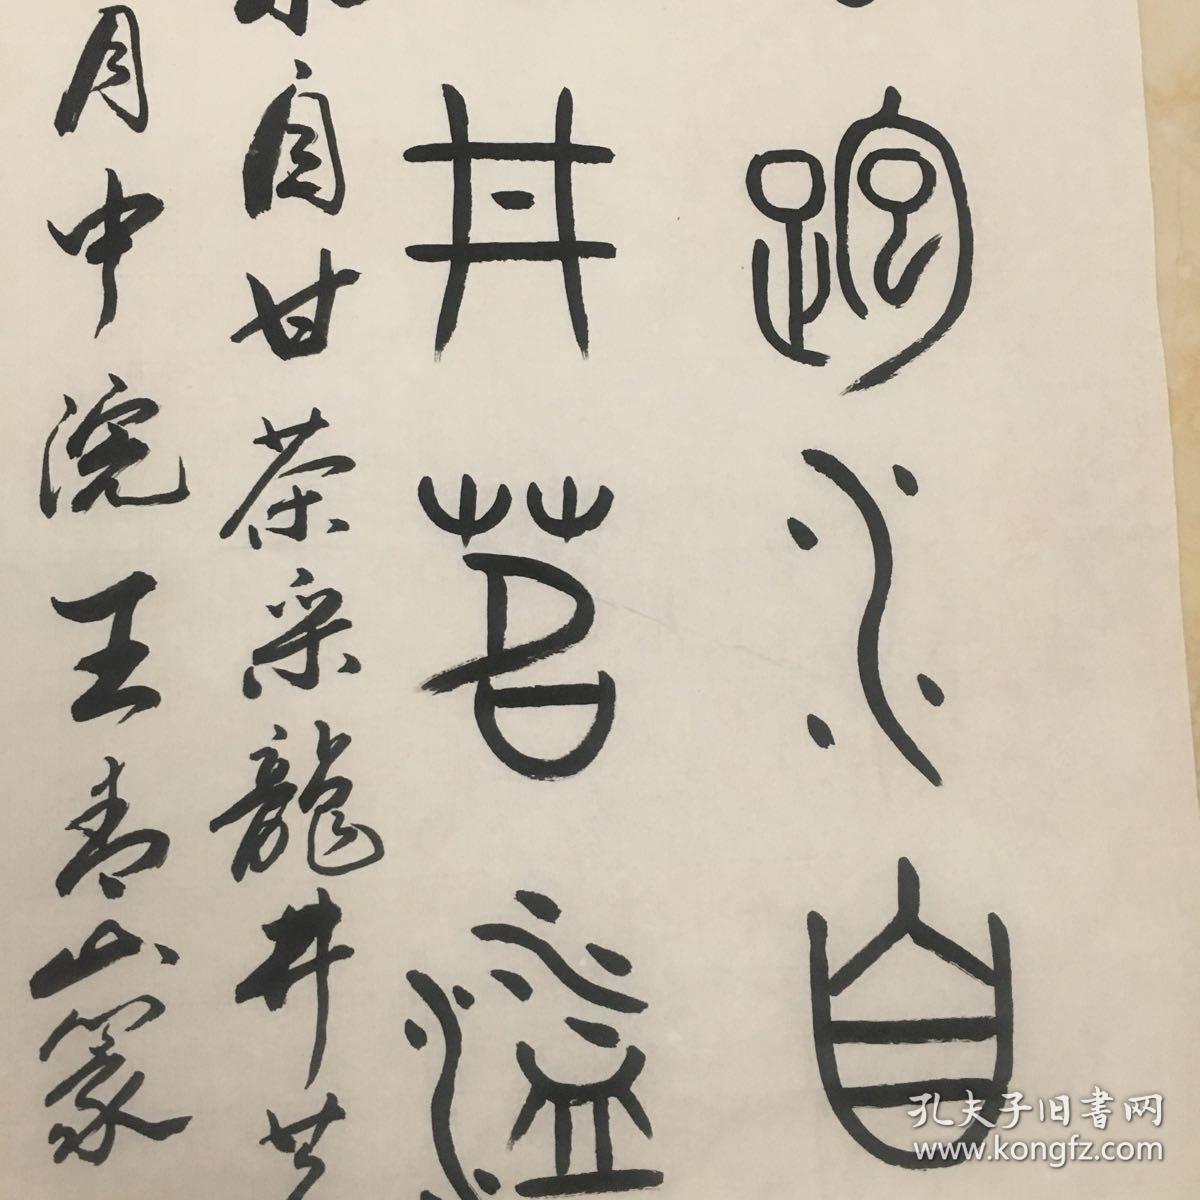 跑水自
井茗溢
泉自甘茶采龍井茗
月中浣王青山篆
孔夫子旧書网
www.kongfz.com